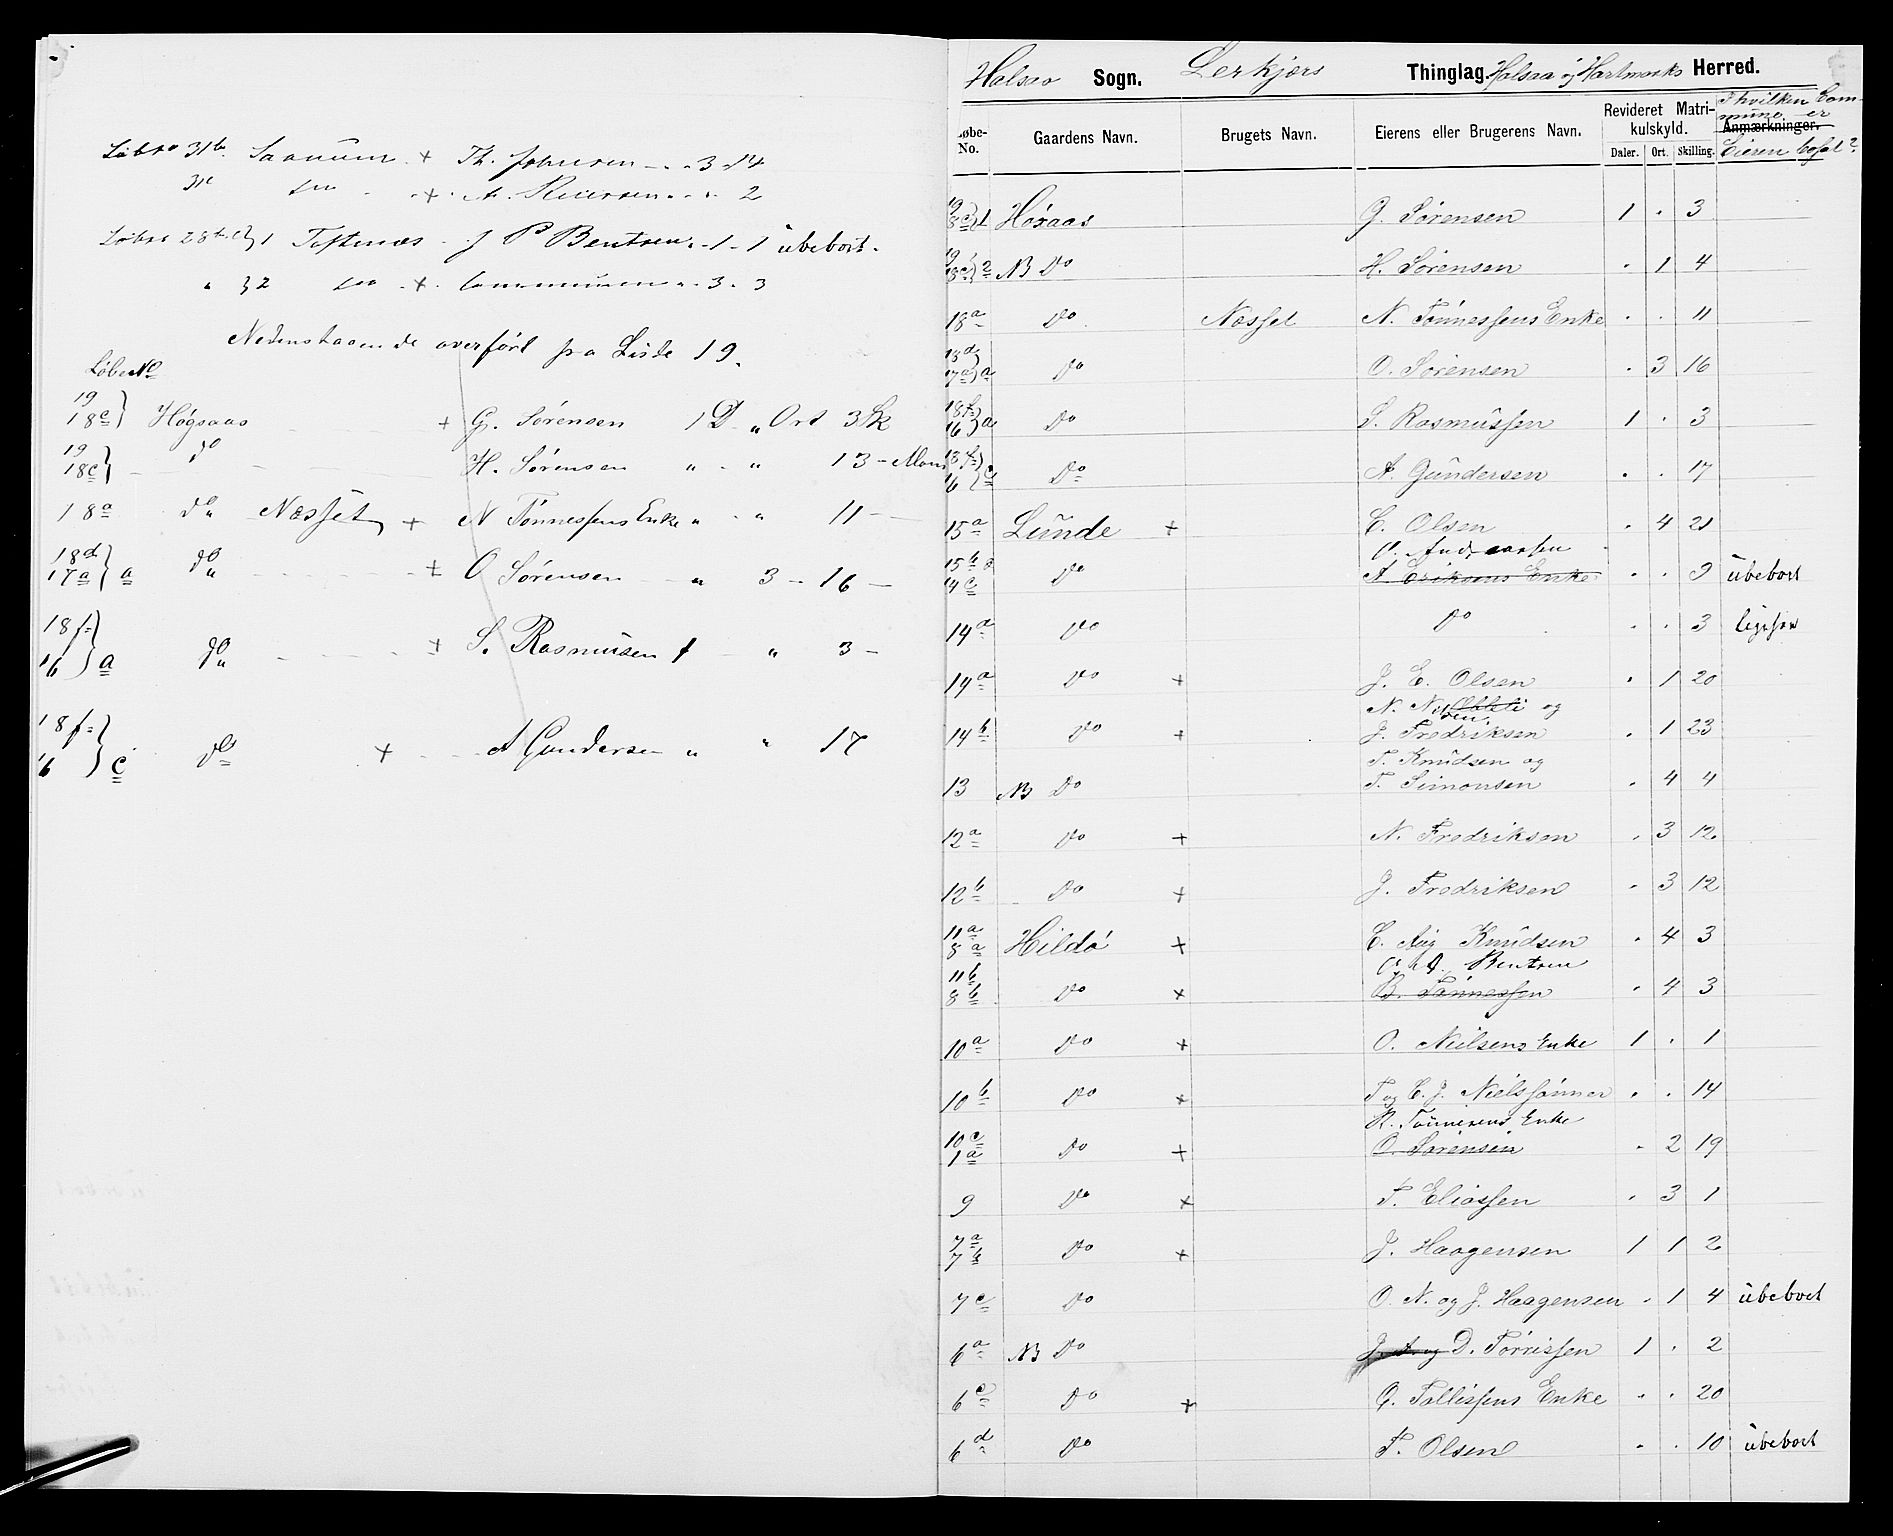 Löbno 31b. Saanum + Th. Johnsen - " 3 " 14
31c do + A. Reiersen " " 2
Löbno 28 } 1 Toftenæs - J P Bentsen " 1 - 1 übebort.
" } 2 do + Communen " 3 " 3
Nedenstaaende overført fra Liste 19.
Løbe No
19 18c } Høgsaas + G. Sørensen 1 D " Ort 3 Sk
19 18c } do H. Sørensen " " 13 -
18a do Næsset + N Tønnessens Enke " " 11 -
18d 17a } a do + O Sørensen " 3 - 16 -
18f 16 } a do + S. Rasmüsen 1 " 3 -
18f 16 } c do + A Gundersen " " 17
Halsaa Sogn. Lerkjærs Thinglag. Halsaa og Hartmarks Herred.
Løbe-No. Gaardens Navn. Brugets Navn. Eierens eller Brugerens Navn. Revideret Matrikulskyld. Anmærkninger.
I hvilken Commune er Eieren bosat?
Daler. Ort. Skilling.
19 18c } 1 Høxaas G. Sørensen 1 " 3
19 18c } 2 NB Do H. Sørensen " 1 4
18a Do Næsset N. Tønnessens Enke " " 11
18d 17a } a Do O. Sørensen " 3 16
18f 16 } a Do S. Rasmüssen 1 " 3
18f 16 } c Do A. Gündersen " " 17
15a Lünde + C. Olsen " 4 21
O. Andreassen
15b 14c Do A Eriksens Enke " " 9 übebort
14a Do Do " " 3 ligesaa
14a Do + J. E. Olsen " 1 20
N. Nilsen og
14b Do + J. Fredriksen " 1 23
T. Knüdsen og
13 NB Do T. Simonsen " 4 4
12a Do + N. Fredriksen " 3 12
12b Do + J. Fredriksen " 3 12
11a 8a Hildø + C. Aüg Knüdsen " 4 3
Bentsen
11b 8b Do + B. Tønnessen " 4 3
10a Do + O. Nielsens Enke 1 " 1
10b Do + T og C. J. Nielssønner " " 14
R. Tønnesens Enke
10c 1a Do + O. Sørensen " 2 19
9 Do + T. Eliassen " 3 1
7a 7b Do + J. Haagensen 1 1 2
7c Do O. N. og J. Haagensen " 1 4 übebort
6a NB Do J. A. og D. Tørrissen 1 " 2
6c Do + G. Tallissens Enke " " 20
6d Do T. Olsen " " 10 übebort